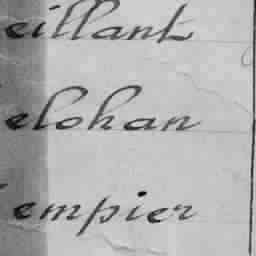 eillant
elohan
empier